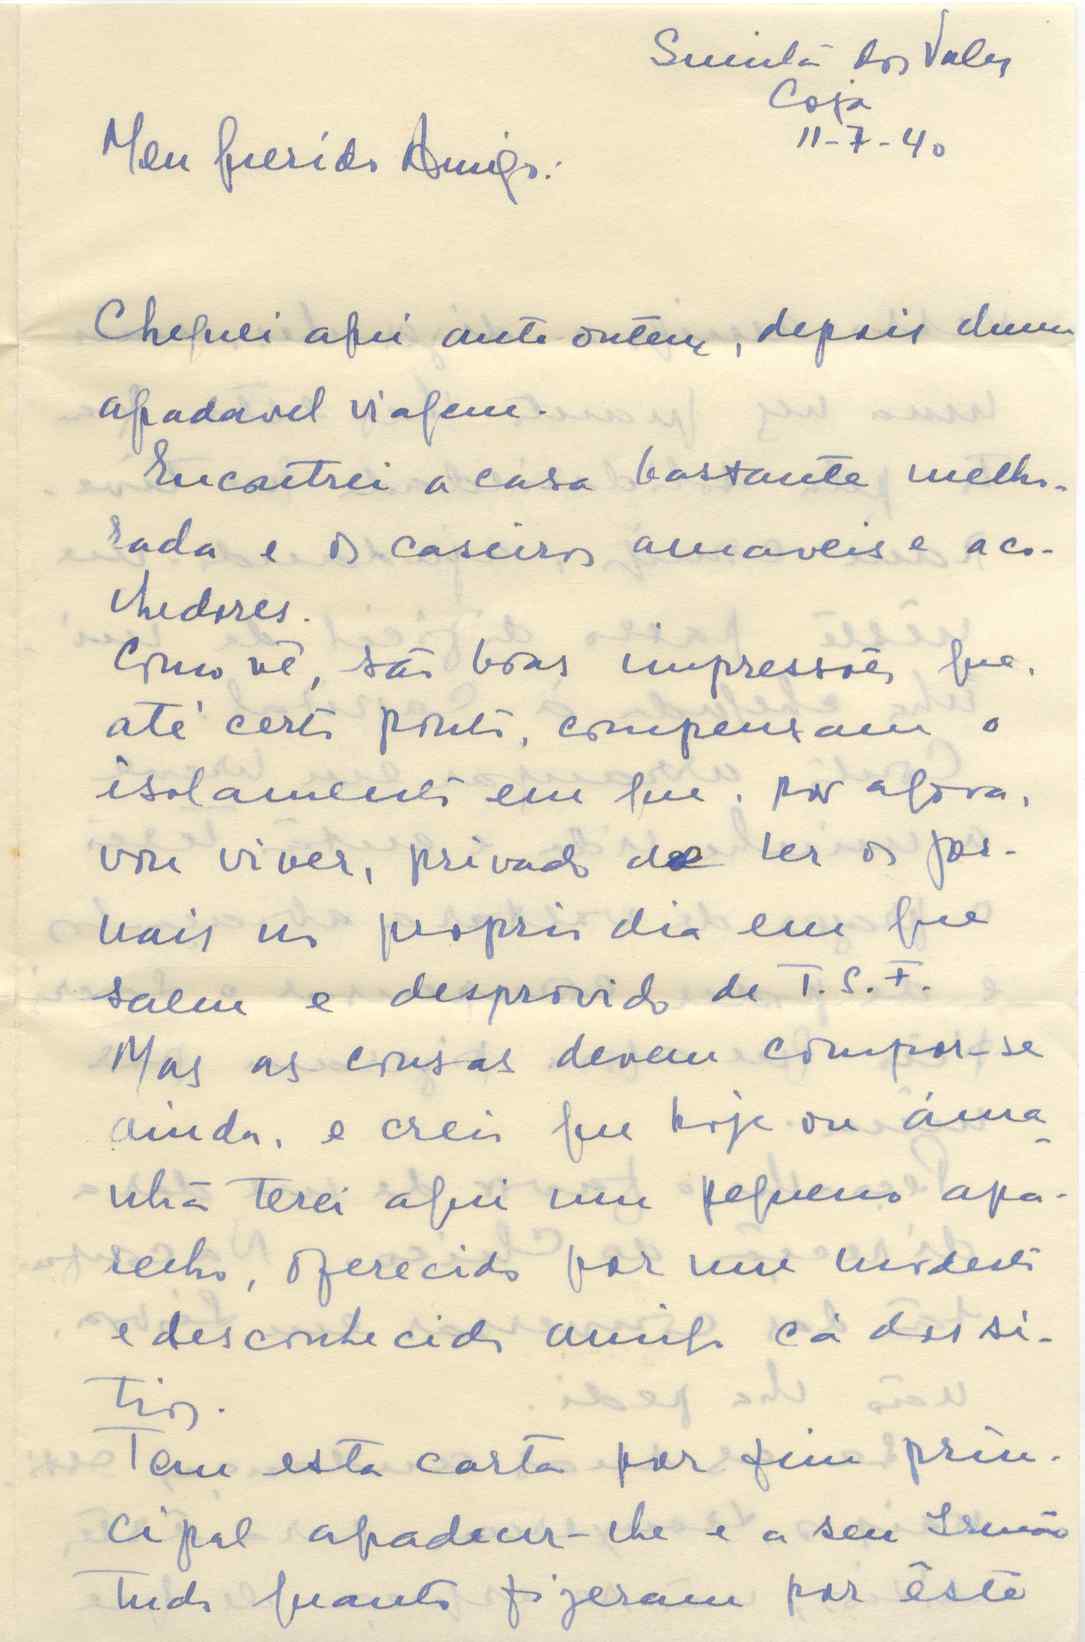 Quinta dos Vales
Coja
11-7-40
Meu querido Amigo:
Cheguei aqui ante ontem, depois duma
agradavel viagem.
Encontrei a casa bastante melho-
rada e os caseiros amaveis e aco-
lhedores.
Como vê, são boas impressões que,
até certo ponto, compensam o
isolamento em que, por agora,
vou viver, privado de ler os jor-
nais no proprio dia em que
saem e desprovido de T.S.F.
Mas as cousas devem compor-se
ainda, e creio que hoje ou áma-
nhã terei aqui um pequeno apa-
relho, oferecido por um modesto
e desconhecido amigo cá dos si-
tios.
Tem esta carta por fim prin-
cipal agradecer-lhe e a seu Irmão
tudo quanto fizeram por êste